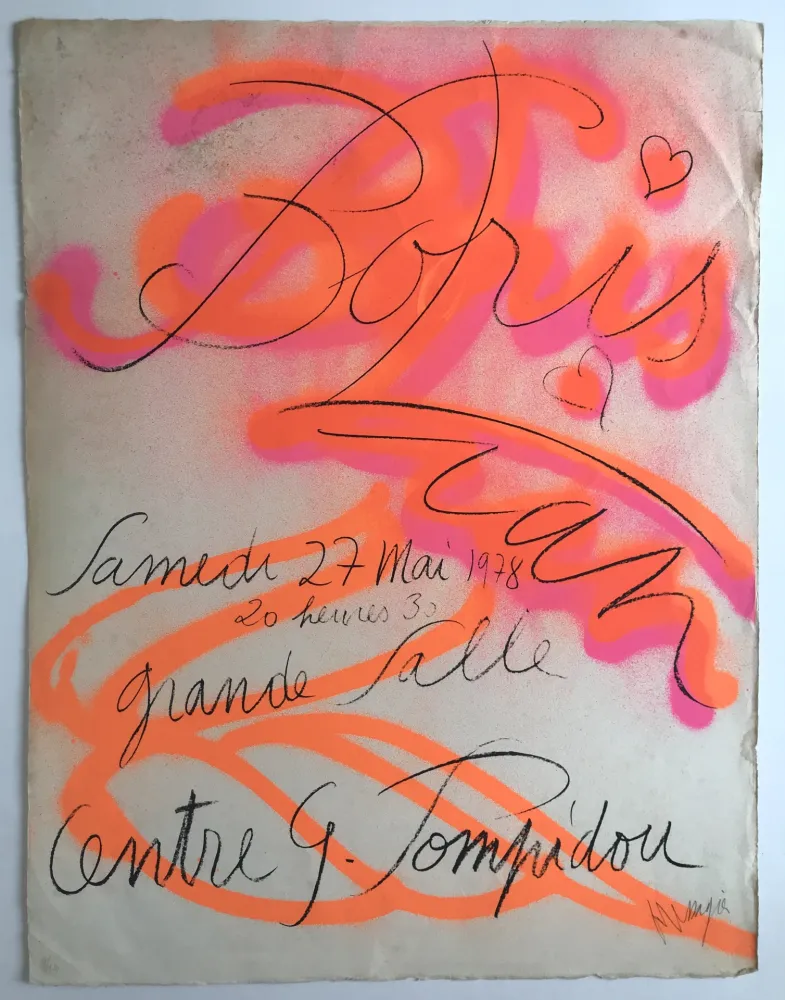 Boris
Vian
Samedi 27 Mai 1978
20 heures 30
grande Salle
Centre G. Pompidou